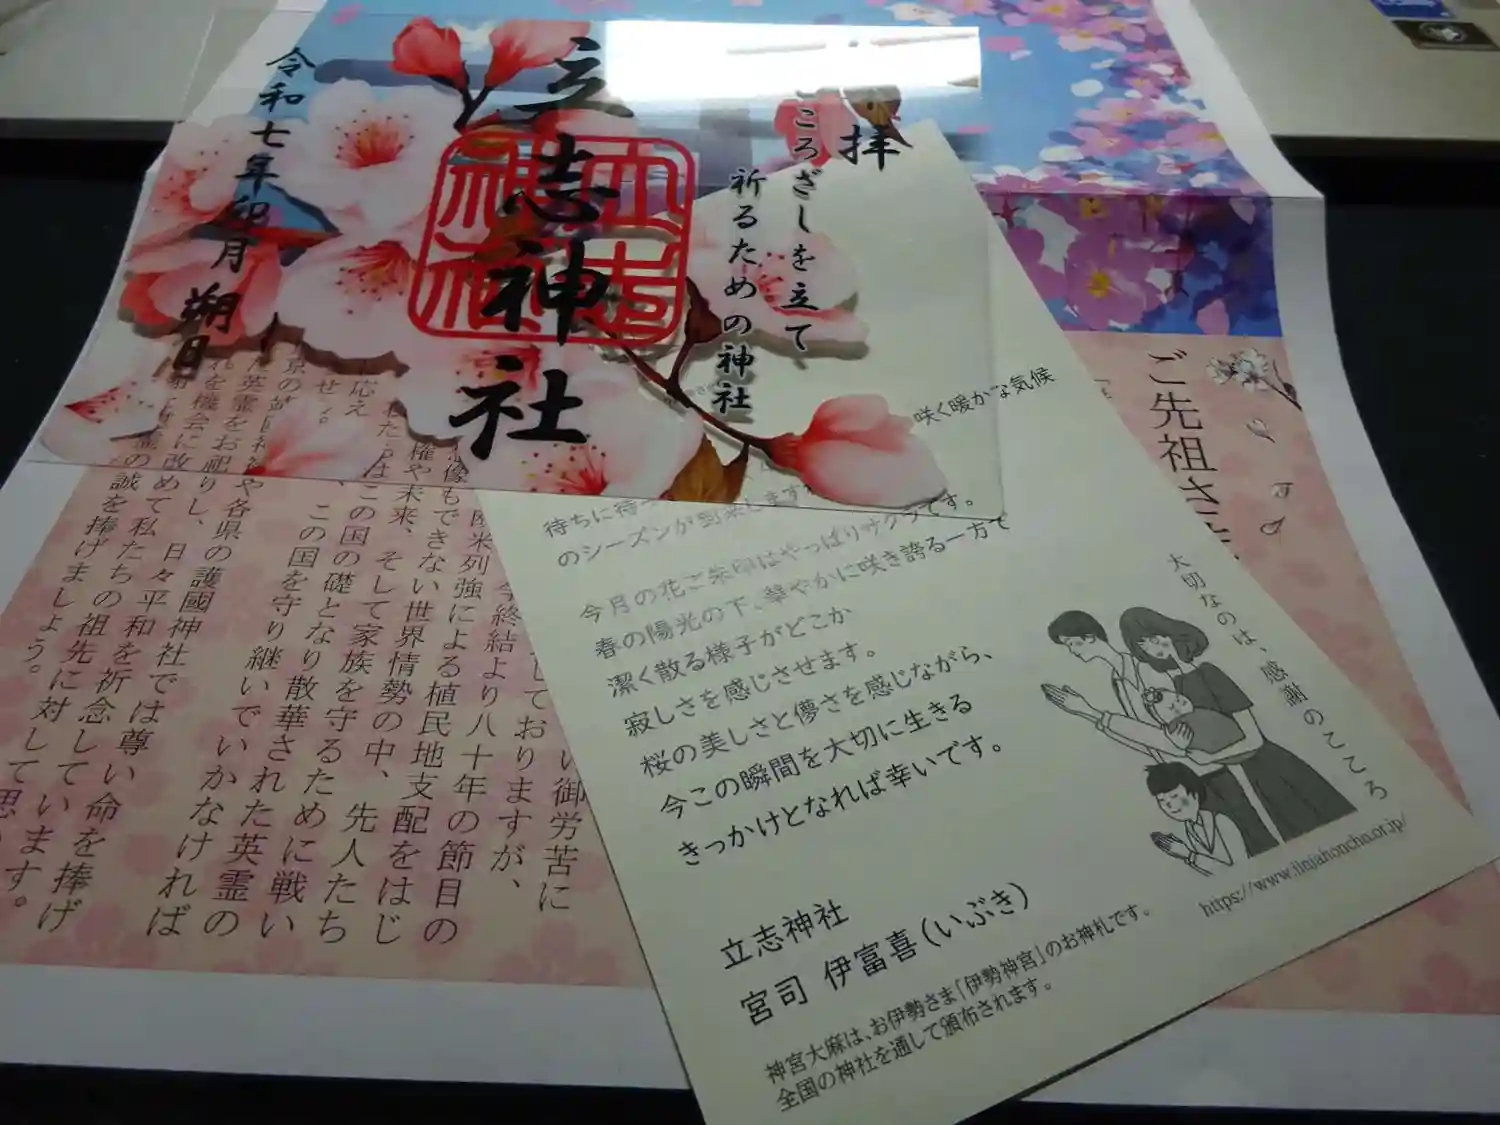 奉拝
こころざしを立て
祈るための神社
立志神社
令和七年卯月
朔日
咲く暖かな気候
待ちに待っ
のシーズンが到来します
今月の花ご朱印はやっぱりサクラです。
春の陽光の下、華やかに咲き誇る一方で
潔く散る様子がどこか
寂しさを感じさせます。
桜の美しさと儚さを感じながら、
今この瞬間を大切に生きる
きっかけとなれば幸いです。
立志神社
宮司 伊富喜(いぶき)
神宮大麻は、お伊勢さま「伊勢神宮」のお神札です。
全国の神社を通して頒布されます。
大切なのは、感謝のこころ
https://www.jinjahoncho.or.jp/
ご先祖さま
い御労苦に
しておりますが、
終結より八十年の節目の
欧米列強による植民地支配をはじ
想像もできない世界情勢の中、先人たち
権や未来、そして家族を守るために戦い
はこの国の礎となり散華された英霊の
、この国を守り継いでいかなければ
応え
せん。
や各県の護國神社では尊い命を捧げ
英霊をお祀りし、日々平和を祈念しています。
れを機会に改めて私たちの祖先に対して思い
の誠を捧げましょう。